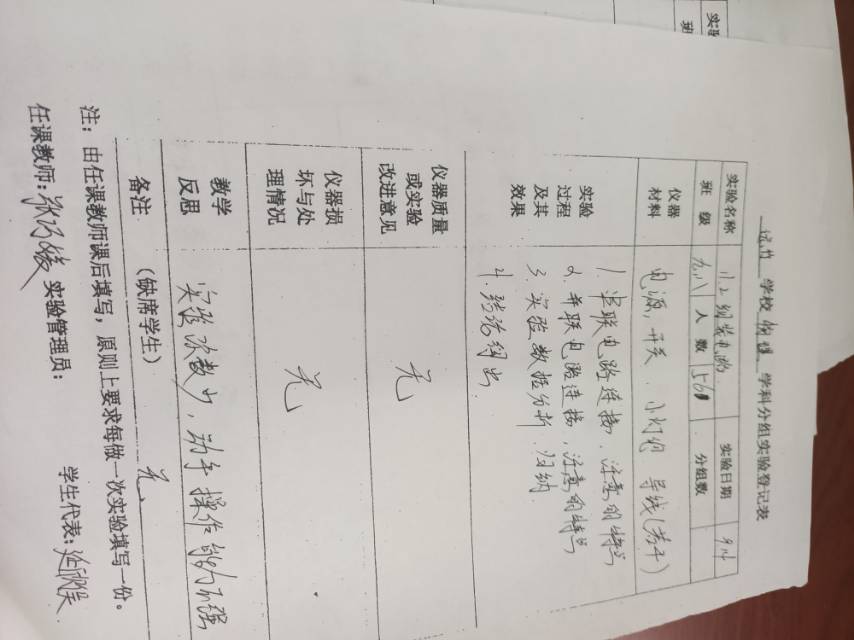 学校 物理 学科分组实验登记表
实验名称 11.2 组装电路 实验日期 9.14
班级 九.八 人数 56 分组数
仪器材料 电源 开关 小灯泡 导线(若干)
实验过程及其效果
1. 串联电路连接、注意的特点
2. 并联电路连接、注意的特点
3. 实验数据分析 归纳
4. 结论得出
仪器质量或实验改进意见 无
仪器损坏与处理情况 无
教学反思 实验次数少,动手操作能力不强
备注 (缺席学生) 无
注:由任课教师课后填写,原则上要求每做一次实验填写一份。
任课教师: 实验管理员: 学生代表:
实验
班